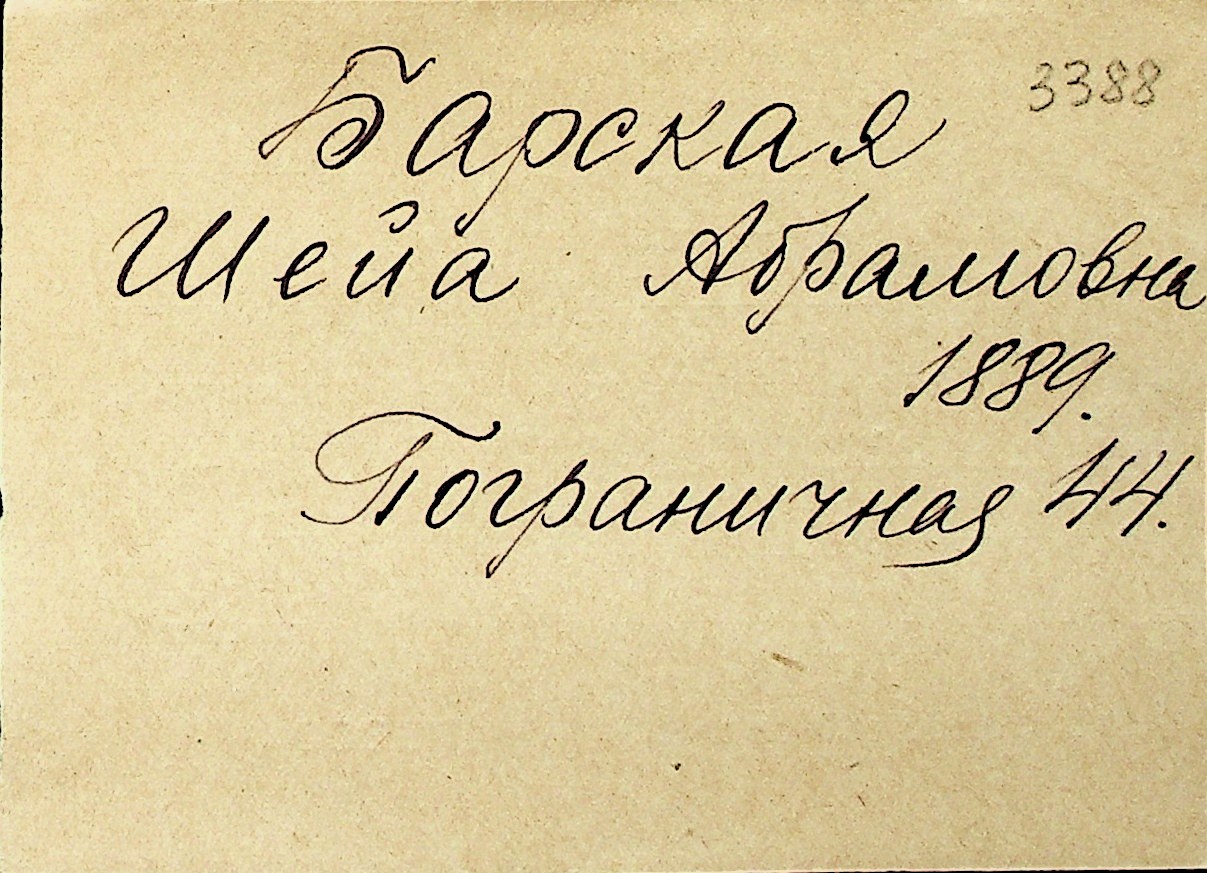 3388
Барская
Шейа Абрамовна
1889.
Пограничная 44.